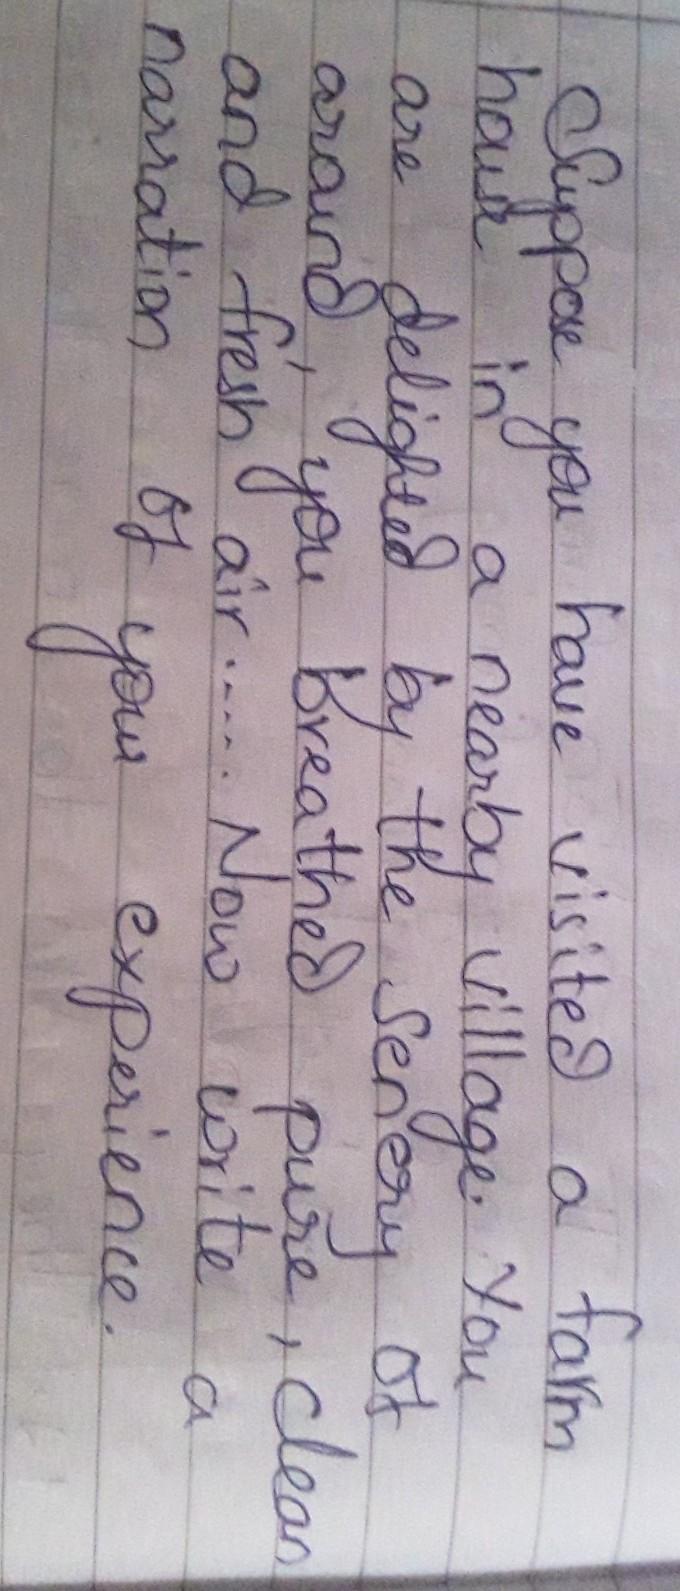 Suppose you have visited a farm
house in a nearby village. You
are delighted by the senery of
around, you breathed pure, clean
and fresh air..... Now write a
narration of your experience.